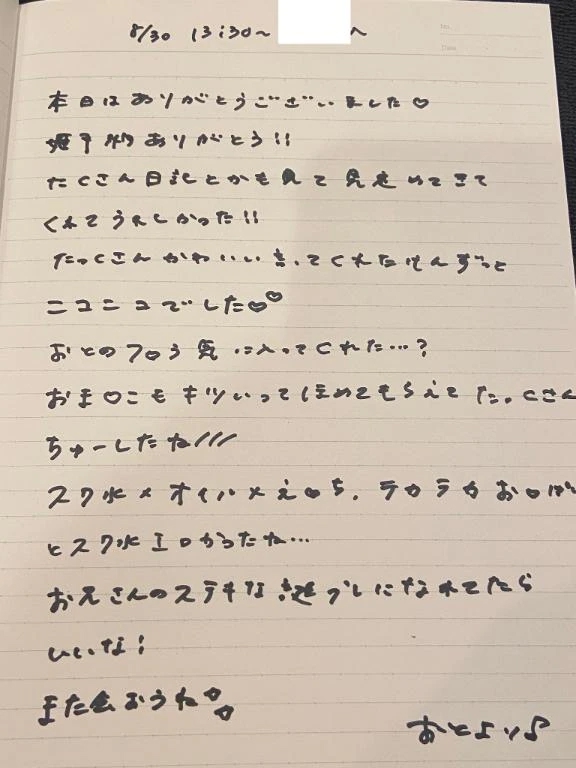 8/30 13:30~ へ
本日はありがとうございました♡
姫予約ありがとう!!
たくさん日記とかも見て見定めてきて
くれてうれしかった!!
たっくさんかわいい言ってくれたけんずっと
ニコニコでした♡♡
おとのフロう気に入ってくれた…?
おま♡こもキツいってほめてもらえてたっくさん
ちゅーしたね///
スク水×オイル×え♡ち、テカテカお♡ぱい
とスク水エロかったね…
お兄さんのステキな遊びになれてたら
いいな!
また会おうね♡♡
おとより♪